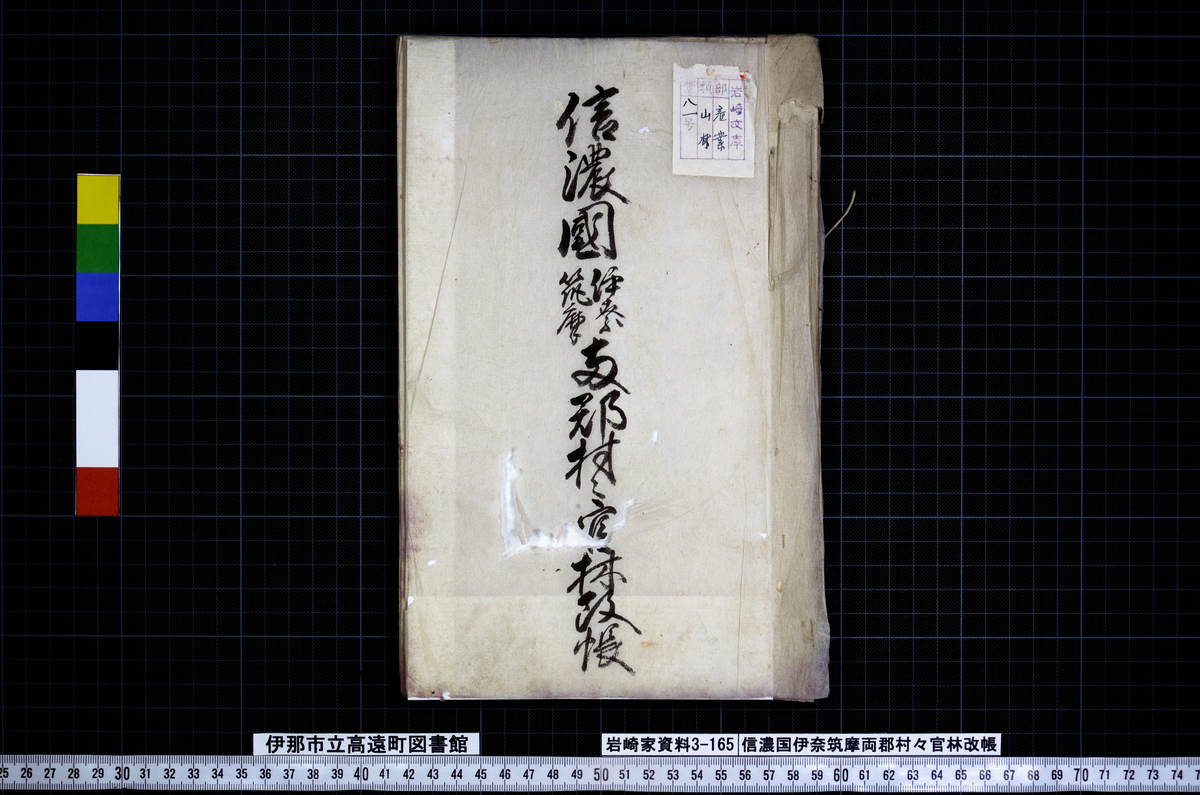 信濃國伊奈筑摩両郡村々官林改帳
岩崎文庫
部 産業
類 山林
八一号
伊那市立高遠町図書館
岩崎家資料3-165
信濃国伊奈筑摩両郡村々官林改帳
25 26 27 28 29 30 31 32 33 34 35 36 37 38 39 40 41 42 43 44 45 46 47 48 49 50 51 52 53 54 55 56 57 58 59 60 61 62 63 64 65 66 67 68 69 70 71 72 73 74